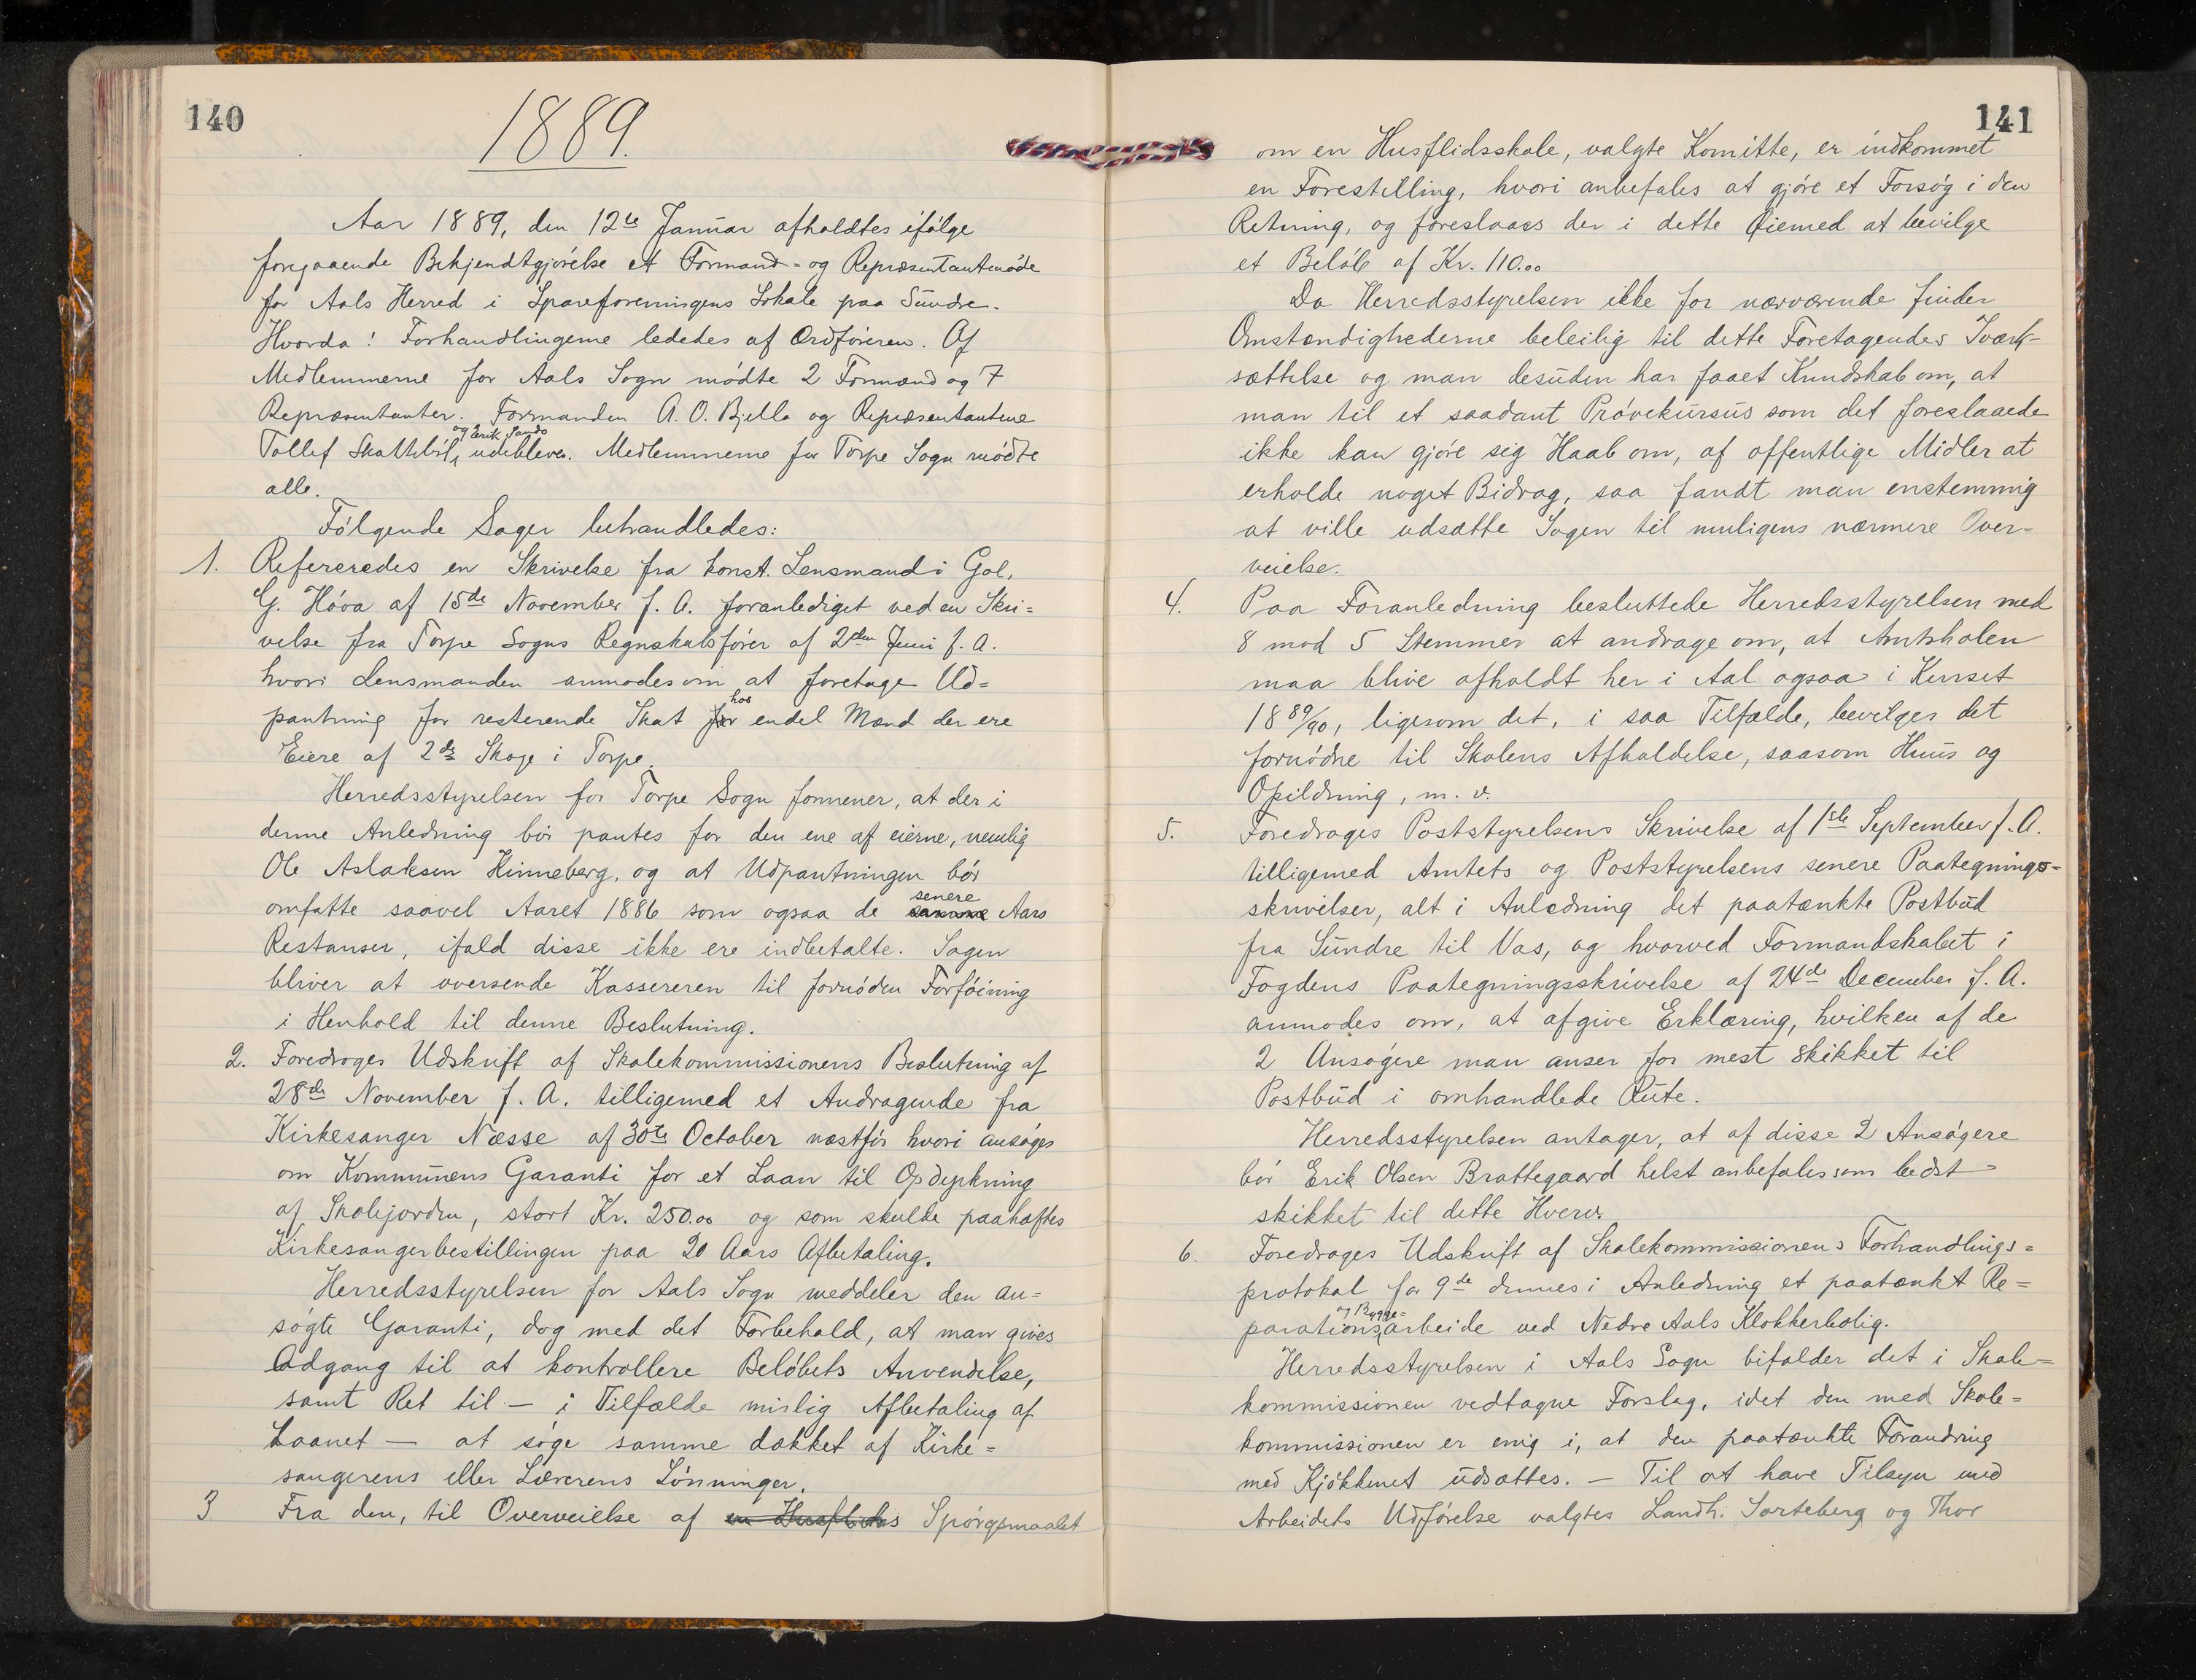 140
1889.
Aar 1889, den 12te Januar afholdtes ifølge
foregaaende Bekjendtgjørelse et Formand- og Repræsentantmøde
for Aals Herred i Spareforeningens Lokale paa Sundre.
Hvorda! Forhandlingerne lededes af Ordføreren. Af
Medlemmerne for Aals Sogn mødte 2 Formænd og 7
Repræsentanter. Formanden A. O. Bjella og Repræsentanterne
og Erik Sando
Tollef Skattebøl, udebleve. Medlemmerne for Torpe Sogn mødte
alle.
Følgende Sager behandledes:
1. Refereredes en Skrivelse fra konst. Lensmand i Gol,
G. Hóva af 15de November f. A. foranlediget ved en Skri=
velse fra Torpe Sogns Regnskabsfører af 2den Juni f. A.
hvori Lensmanden anmodes om at foretage Ud=
hos
pantning for resterende Skat for endel Mænd der ere
Eiere af 2de Skoge i Torpe.
Herredsstyrelsen for Torpe Sogn formener, at der i
denne Anledning bør pantes for den ene af eierne, nemlig
Ole Aslaksen Hinneberg, og at Udpantningen bør
senere
omfatte saavel Aaret 1886 som ogsaa de samme Aars
Restanser, ifald disse ikke ere indbetalte. Sagen
bliver at oversende Kassereren til fornøden Forføining
i Henhold til denne Beslutning.
2. Foredroges Udskrift af Skolekommissionens Beslutning af
28de November f. A. tilligemed et Andragende fra
Kirkesanger Næsse af 30te October næstfør hvori ansøges
om Kommunens Garanti for et Laan til Opdyrkning
af Skolejorden, stort Kr. 250.00 og som skulde paahæftes
Kirkesangerbestillingen paa 20 Aars Afbetaling.
Herredsstyrelsen for Aals Sogn meddeler den an=
søgte Garanti, dog med det Forbehold, at man gives
Adgang til at kontrollere Beløbets Anvendelse,
samt Ret til — i Tilfælde mislig Afbetaling af
Laanet — at søge samme dækket af Kirke=
sangerens eller Lærerens Lønninger.
3. Fra den, til Overveielse af en Husflids Spørgsmaalet
141
om en Husflidsskole, valgte Komitte, er indkommet
en Forestilling, hvori anbefales at gjøre et Forsøg i den
Retning, og foreslaaes der i dette Øiemed at bevilge
et Beløb af Kr. 110.00
Da Herredsstyrelsen ikke for nærværende finder
Omstændighederne beleilig til dette Foretagendes Iværk-
sættelse og man desuden har faaet Kundskab om, at
man til et saadant Prøvekursus som det foreslaaede
ikke kan gjøre sig Haab om, af offentlige Midler at
erholde noget Bidrag, saa fandt man enstemmig
at ville udsætte Sagen til muligens nærmere Over=
veielse.
4. Paa Foranledning besluttede Herredsstyrelsen med
8 mod 5 Stemmer at andrage om, at Amtskolen
maa blive afholdt her i Aal ogsaa i Kurset
1889/90, ligesom det, i saa Tilfælde, bevilges det
fornødne til Skolens Afholdelse, saasom Huus og
Opildning, m. v.
5. Foredroges Poststyrelsens Skrivelse af 1ste September f. A.
tilligemed Amtets og Poststyrelsens senere Paategnings=
skrivelser, alt i Anledning det paatænkte Postbud
fra Sundre til Vas, og hvorved Formandskabet i
Fogdens Paategningsskrivelse af 24de December f. A.
anmodes om, at afgive Erklæring, hvilken af de
2 Ansøgere man anser for mest skikket til
Postbud i omhandlede Rute.
Herredsstyrelsen antager, at af disse 2 Ansøgere
bør Erik Olsen Brattegaard helst anbefales som bedst
skikket til dette Hverv.
6. Foredroges Udskrift af Skolekommissionens Forhandlings=
protokol for 9de dennes i Anledning et paatænkt Re=
og Bygge=
parations,arbeide ved Nedre Aals Klokkerbolig.
Herredsstyrelsen i Aals Sogn bifalder det i Skole=
kommissionen vedtagne Forslag, idet den med Skole=
kommissionen er enig i, at den paatænkte Forandring
med Kjøkkenet udsættes. — Til at have Tilsyn med
Arbeidets Udførelse valgtes Landh. Sorteberg og Thor